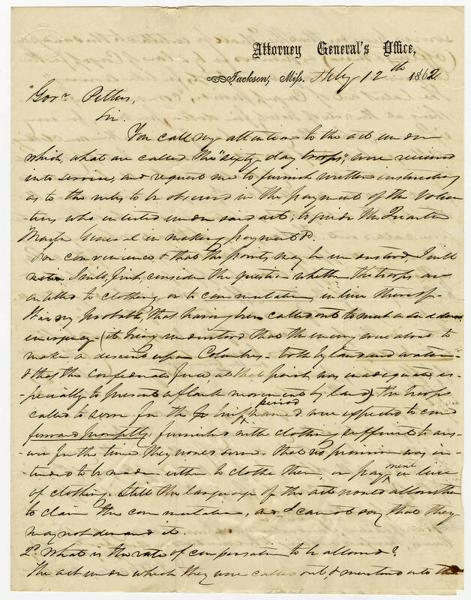 Attorney General's Office,
Jackson, Miss. Feby 12th 1862
Govr. Pettus,
Sir.
You call my attention to the act under
which what are called the "sixty day troops" were received
into service, and request me to furnish written instructions
as to the rules to be observed in the payment of the Volun-
teers who enlisted under said act, to guide the Quarter
Master General in making payment &c.
For convenience & that the points may be understood, I will
I will first, consider the question whether the troops are
entitled to clothing, or to commutation in lieu thereof
It is very probable, that having been called out to meet a sudden
emergency (it being understood that the enemy were about to
make a descent upon Columbus both by land and water &
that the confederate force at that point was inadequate, es-
pecially to prevent a flank movement by land) the troops
called to serve for the period named were expected to come
forward promptly, furnished with clothing sufficient to ans-
wer for the time they would serve. That no provision was in-
tended to be made either to clothe them, or payment in lieu
of clothing. Still the language of the act would allow them
to claim the commutation, and I cannot say that they
may not demand it.
2d What is the rate of compensation to be allowed?
The act under which they were called out, & mustered into the